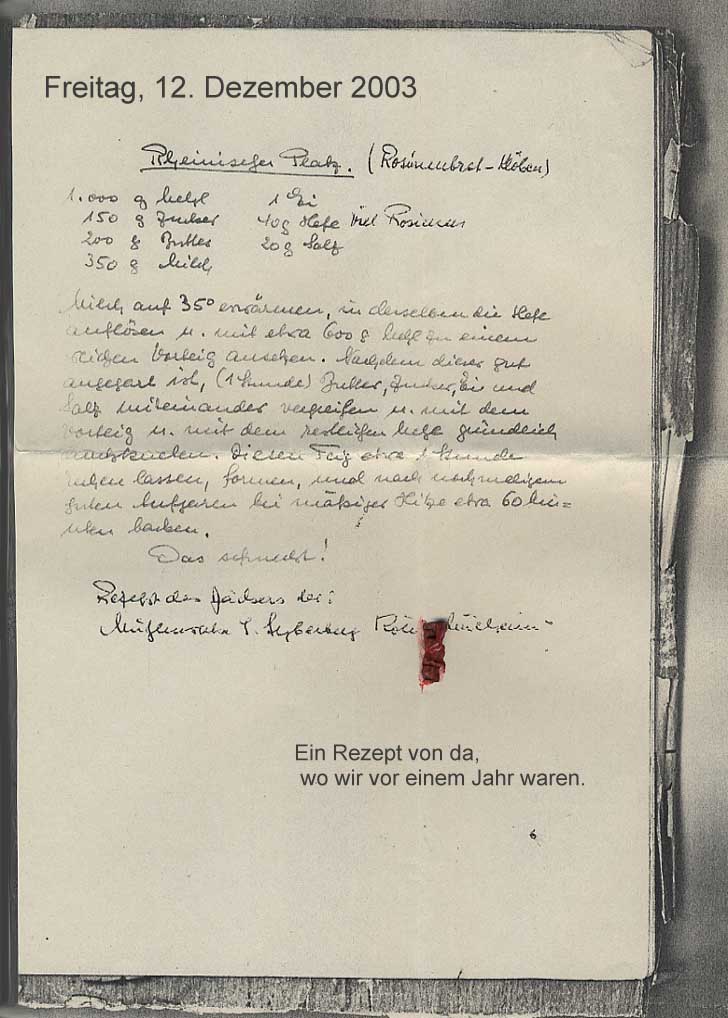 Freitag, 12. Dezember 2003
Rheinischer Platz. (Rosinenbrot-Klöben)
1.000 g Mehl 1 Ei
150 g Zucker 40g Hefe Viel Rosinen
200 g Butter 20g Salz
350 g Milch
Milch auf 35° erwärmen, in derselben die Hefe
auflösen u. mit etwa 600 g Mehl zu einem
Vorteig ansetzen. Nachdem dieser gut
angegart ist, (1 Stunde) Butter, Zucker, Ei und
Salz miteinander u. mit dem
Vorteig u. mit dem restlichen Mehl gründlich
Diesen Teig etwa 1 Stunde
ruhen lassen, formen, und nach nochmaligem
guten Aufgaren bei mäßiger Hitze etwa 60 Min=
uten backen.
Das schmeckt!
Rezept des Bäckers der
Köln
Ein Rezept von da,
wo wir vor einem Jahr waren.
6